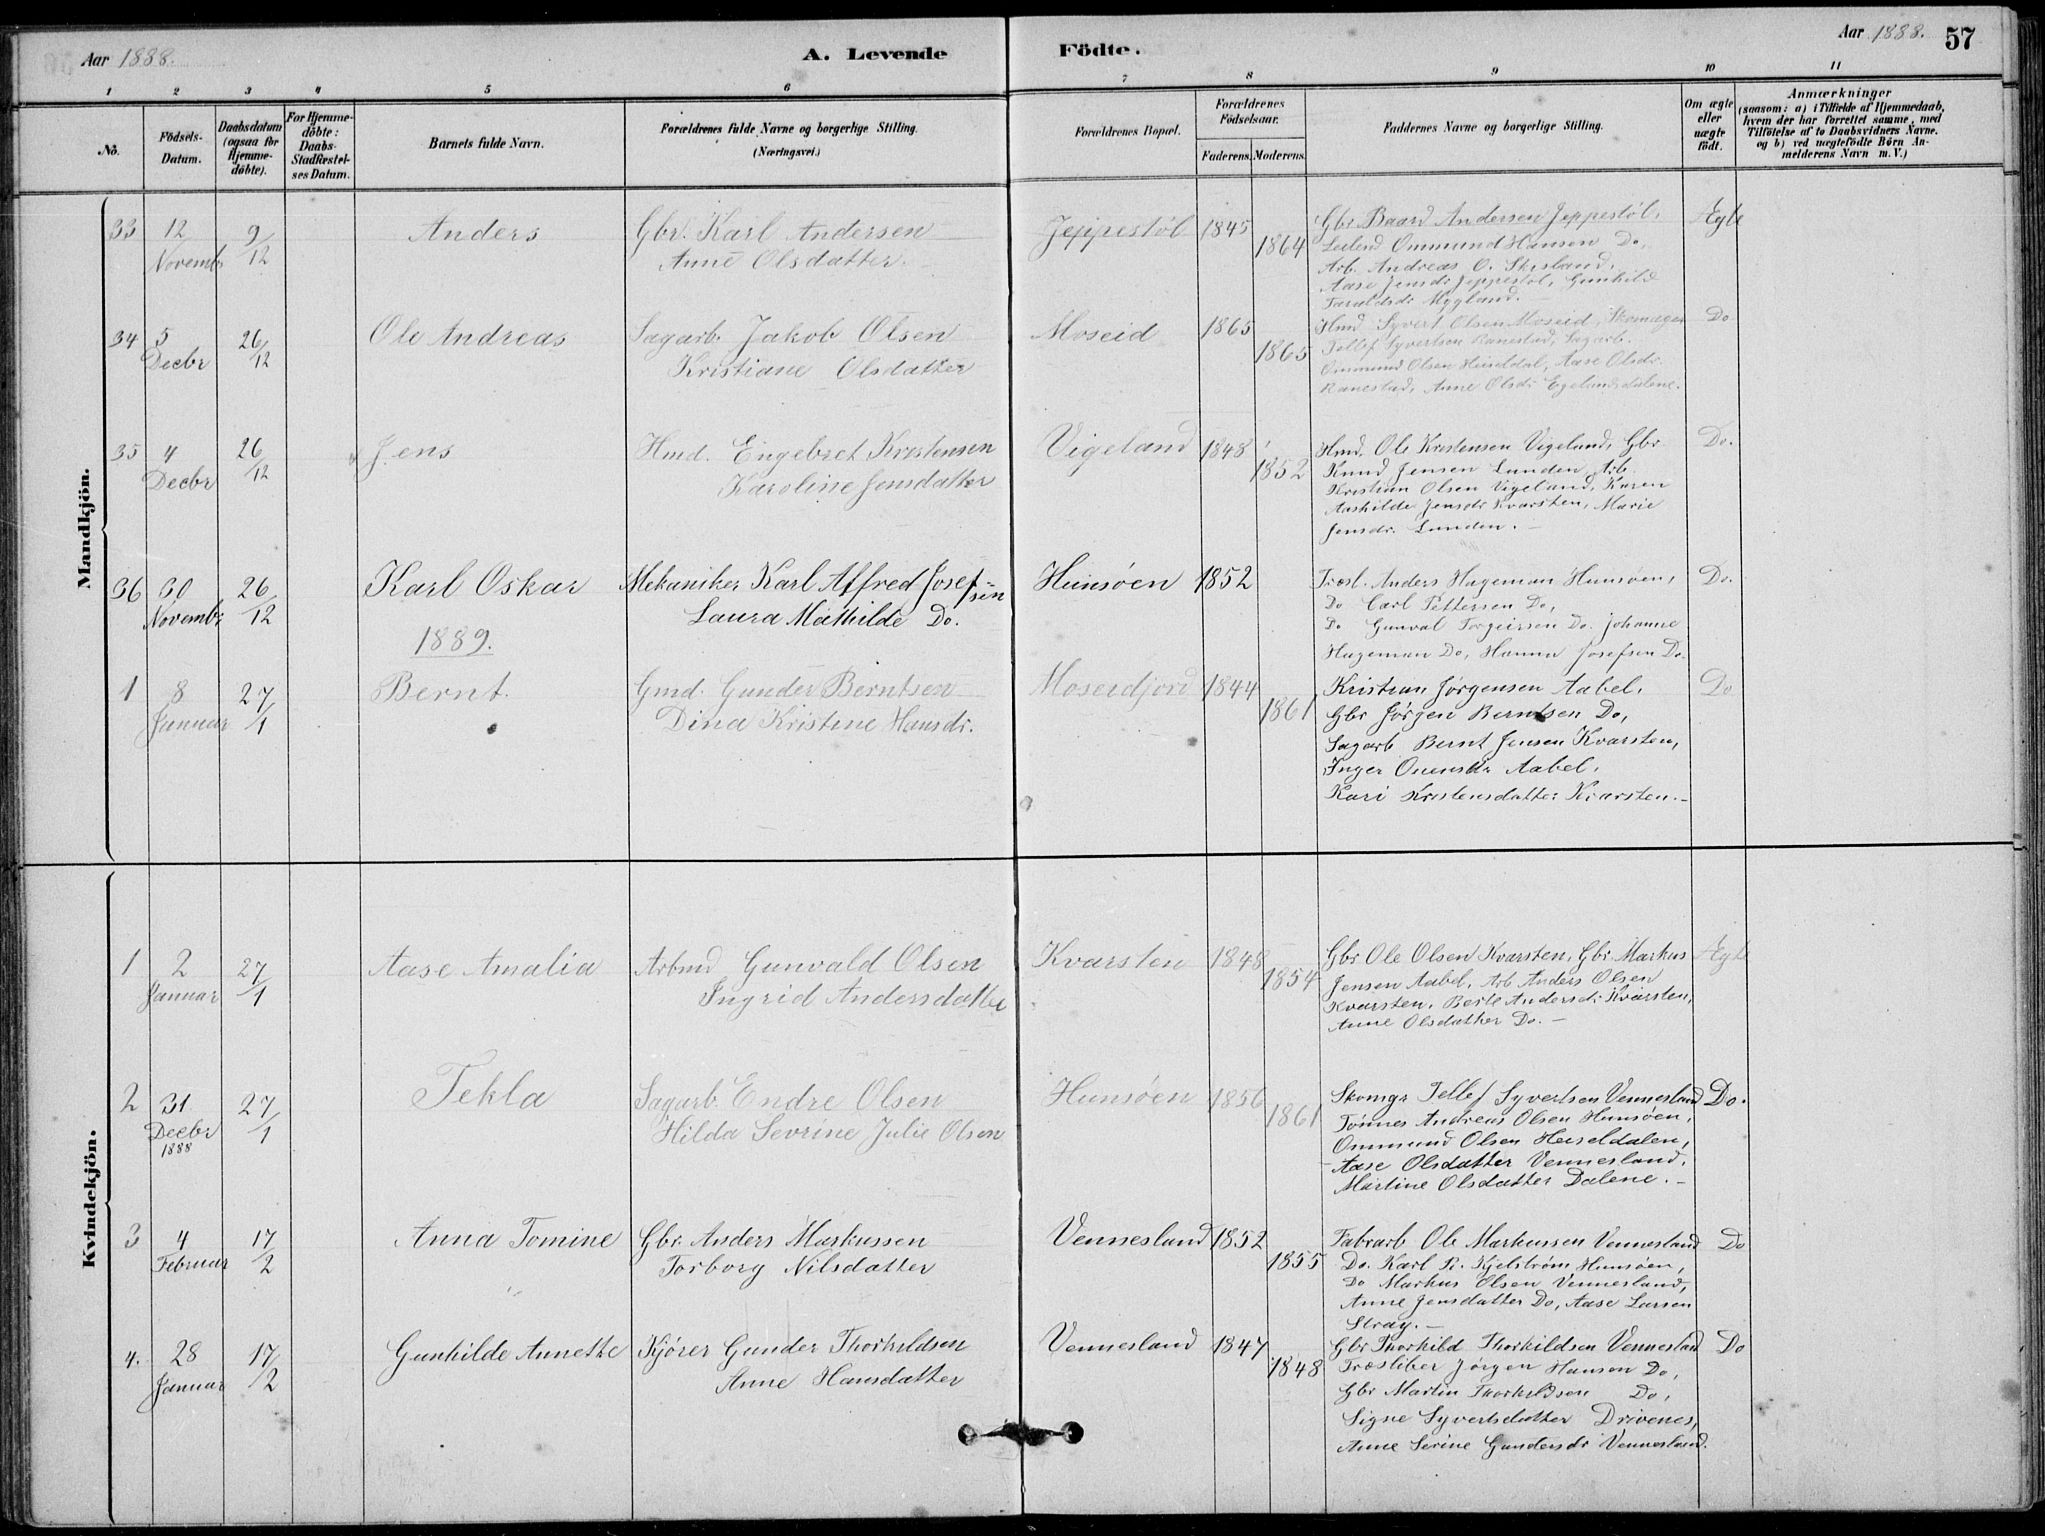 Aar 1888.
A. Levende Födte.
Aar 1888. 57
1 2 3 4 5 6 7 8 9 10 11
No.
Födsels-Datum.
Daabsdatum (ogsaa for Hjemme-döbte).
For Hjemme-döbte: Daabs-Stadfæstel-ses Datum.
Barnets fulde Navn.
Forældrenes fulde Navne og borgerlige Stilling. (Næringsvei.)
Forældrenes Bopæl.
Forældrenes Födselsaar.
Faderens. Moderens.
Faddernes Navne og borgerlige Stilling.
Om ægte eller uægte födt.
Anmærkninger
(saasom: a) i Tilfælde af Hjemmedaab,
hvem der har forrettet samme, med
Tilföielse af to Daabsvidners Navne.
og b) ved uægtefödte Börn An-
melderens Navn m.V.)
Mandkjön.
33 12 Novembr 9/12 Anders
Gbr. Karl Andersen
Anne Olsdatter.
Jeppestøl 1845 1864
Gbr Baard Andersen Jeppestøl,
Leilend Ommund Hansen Do,
Arb. Andreas O. Skisland,
Aase Jensdr Jeppestøl, Gunhild
Taraldsdr Mygland.
Ægte
34 5 Decbr 26/12 Ole Andreas
Sagarb. Jakob Olsen
Kristiane Olsdatter
Moseid 1865 1865
Hmd Syvert Olsen Moseid, Skomager
Tellef Syvertsen Ranestad, Sagarb.
Ommund Olsen Heiseldal, Aase Olsdr.
Ranestad, Anne Olsdr Egelandsdalene.
Do
35 4 Decbr 26/12 Jens
Hmd. Engebret Kristensen
Karoline Jensdatter
Vigeland 1848 1852
Hmd. Ole Kristensen Vigeland, Gbr
Knud Jensen Lunden, Arb.
Kristian Olsen Vigeland, Karen
Aashilde Jensdr Kvarsten, Marie
Jensdr. Lunden.
Do.
36 30 Novembr 26/12 Karl Oskar
Mekaniker Karl Alfred Josef-
sen
Laura Mathilde Do.
Hunsøen 1852
Træsl. Anders Hageman Hunsøen,
Do Carl Pettersen Do,
Do Gunval Torgeirsen Do. Johanne
Hageman Do, Hanna Josefsen Do.
Do.
1889.
1 8 Januar 27/1 Bernt.
Gmd. Gunder Berntsen
Dina Kristine Hansdr.
Moseidjord 1844 1861
Kristian Jørgensen Aabel,
Gbr Jørgen Berntsen Do,
Sagarb Bernt Jensen Kvarsten,
Inger Onensdr Aabel,
Kari Kristensdatter Kvarsten.
Do
Kvindekjön.
1 2 Januar 27/1 Aase Amalia
Arbmd Gunvald Olsen
Ingrid Andersdatter
Kvarsten 1848 1854
Gbr Ole Olsen Kvarsten, Gbr Markus
Jensen Aabel, Arb Anders Olsen
Kvarsten, Berte Andersdr Kvarsten,
Anne Olsdatter Do.
Ægte
2 31 Decbr 1888 27/1 Tekla
Sagarb. Endre Olsen
Hilda Sevrine Julie Olsen
Hunsøen 1856 1861
Skomgr Tellef Syvertsen Vennesland
Tønnes Andreas Olsen Hunsøen,
Ommund Olsen Heiseldalen,
Aase Olsdatter Vennesland,
Martine Olsdatter Dalene.
Do.
3 4 Februar 17/2 Anna Tomine
Gbr. Anders Markussen
Torborg Nilsdatter
Vennesland 1852 1855
Fabrarb Ole Markussen Vennesland
Do. Karl R. Kjelstrøm Hunsøen,
Do Markus Olsen Vennesland,
Anne Jensdatter Do, Aase Larsen
Stray.
Do
4. 28 Januar 17/2 Gunhilde Annette
Kjører Gunder Thorkildsen
Anne Hansdatter
Vennesland 1847 1848
Gbr Thorkild Thorkildsen Vennesland
Træsliber Jørgen Hansen Do,
Gbr Martin Thorkildsen Do,
Signe Syvertsdatter Drivenes,
Anne Serine Gundersdr Vennesland.
Do